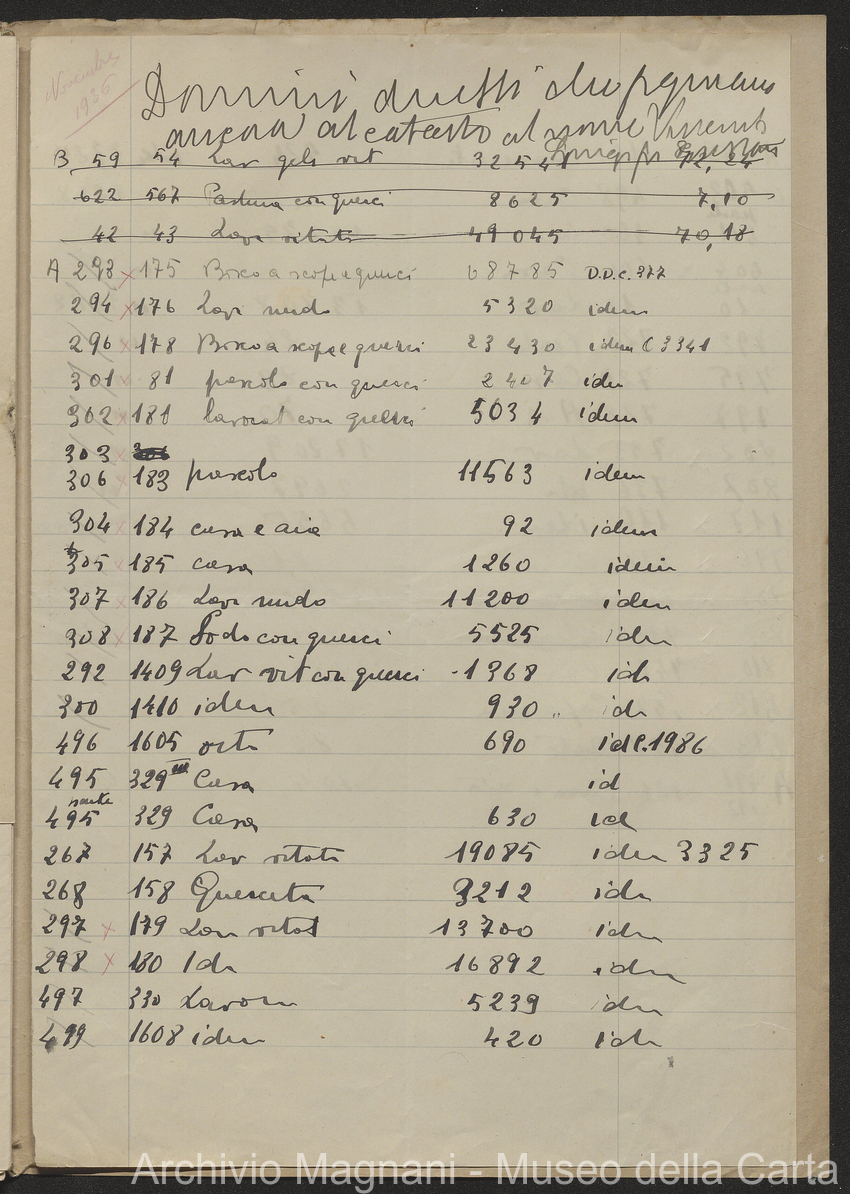 Novembre
1936
Domini diretti che figurano
ancora al catasto al nome Vincenti
Giuseppe
B 59 54 Lav gels vit 32541 72,24
622 567 Pastura con querci 8625 7,10
42 43 Lavo vitato 49045 70,18
A 293 x 175 Bosco a scopa e querci 68785 D.D.C. 377
294 x 176 Lavo nudo 5320 idem
296 x 178 Bosco a scopa e querci 23430 idem C 3341
301 x 81 pascolo con querci 2407 idem
302 x 181 lavorat con querci 5034 idem
303 x
306 x 183 pascolo 11563 idem
304 x 184 casa e aia 92 idem
305 x 185 casa 1260 idem
307 x 186 Lavo nudo 11200 idem
308 x 187 Sodo con querci 5525 idm
292 1409 Lav vit con querci 1368 id
300 1410 idem 930 „ id
496 1605 orto 690 id C. 1986
495 329 III Casa id
495 parte 329 Casa 630 id
267 157 Lav vitato 19085 idem 3325
268 158 Querceto 3212 idm
297 x 179 Lav vitat 13700 idm
298 x 180 Idm 16892 idm
497 330 Lavora 5239 idm
499 1608 idem 420 id
Archivio Magnani - Museo della Carta